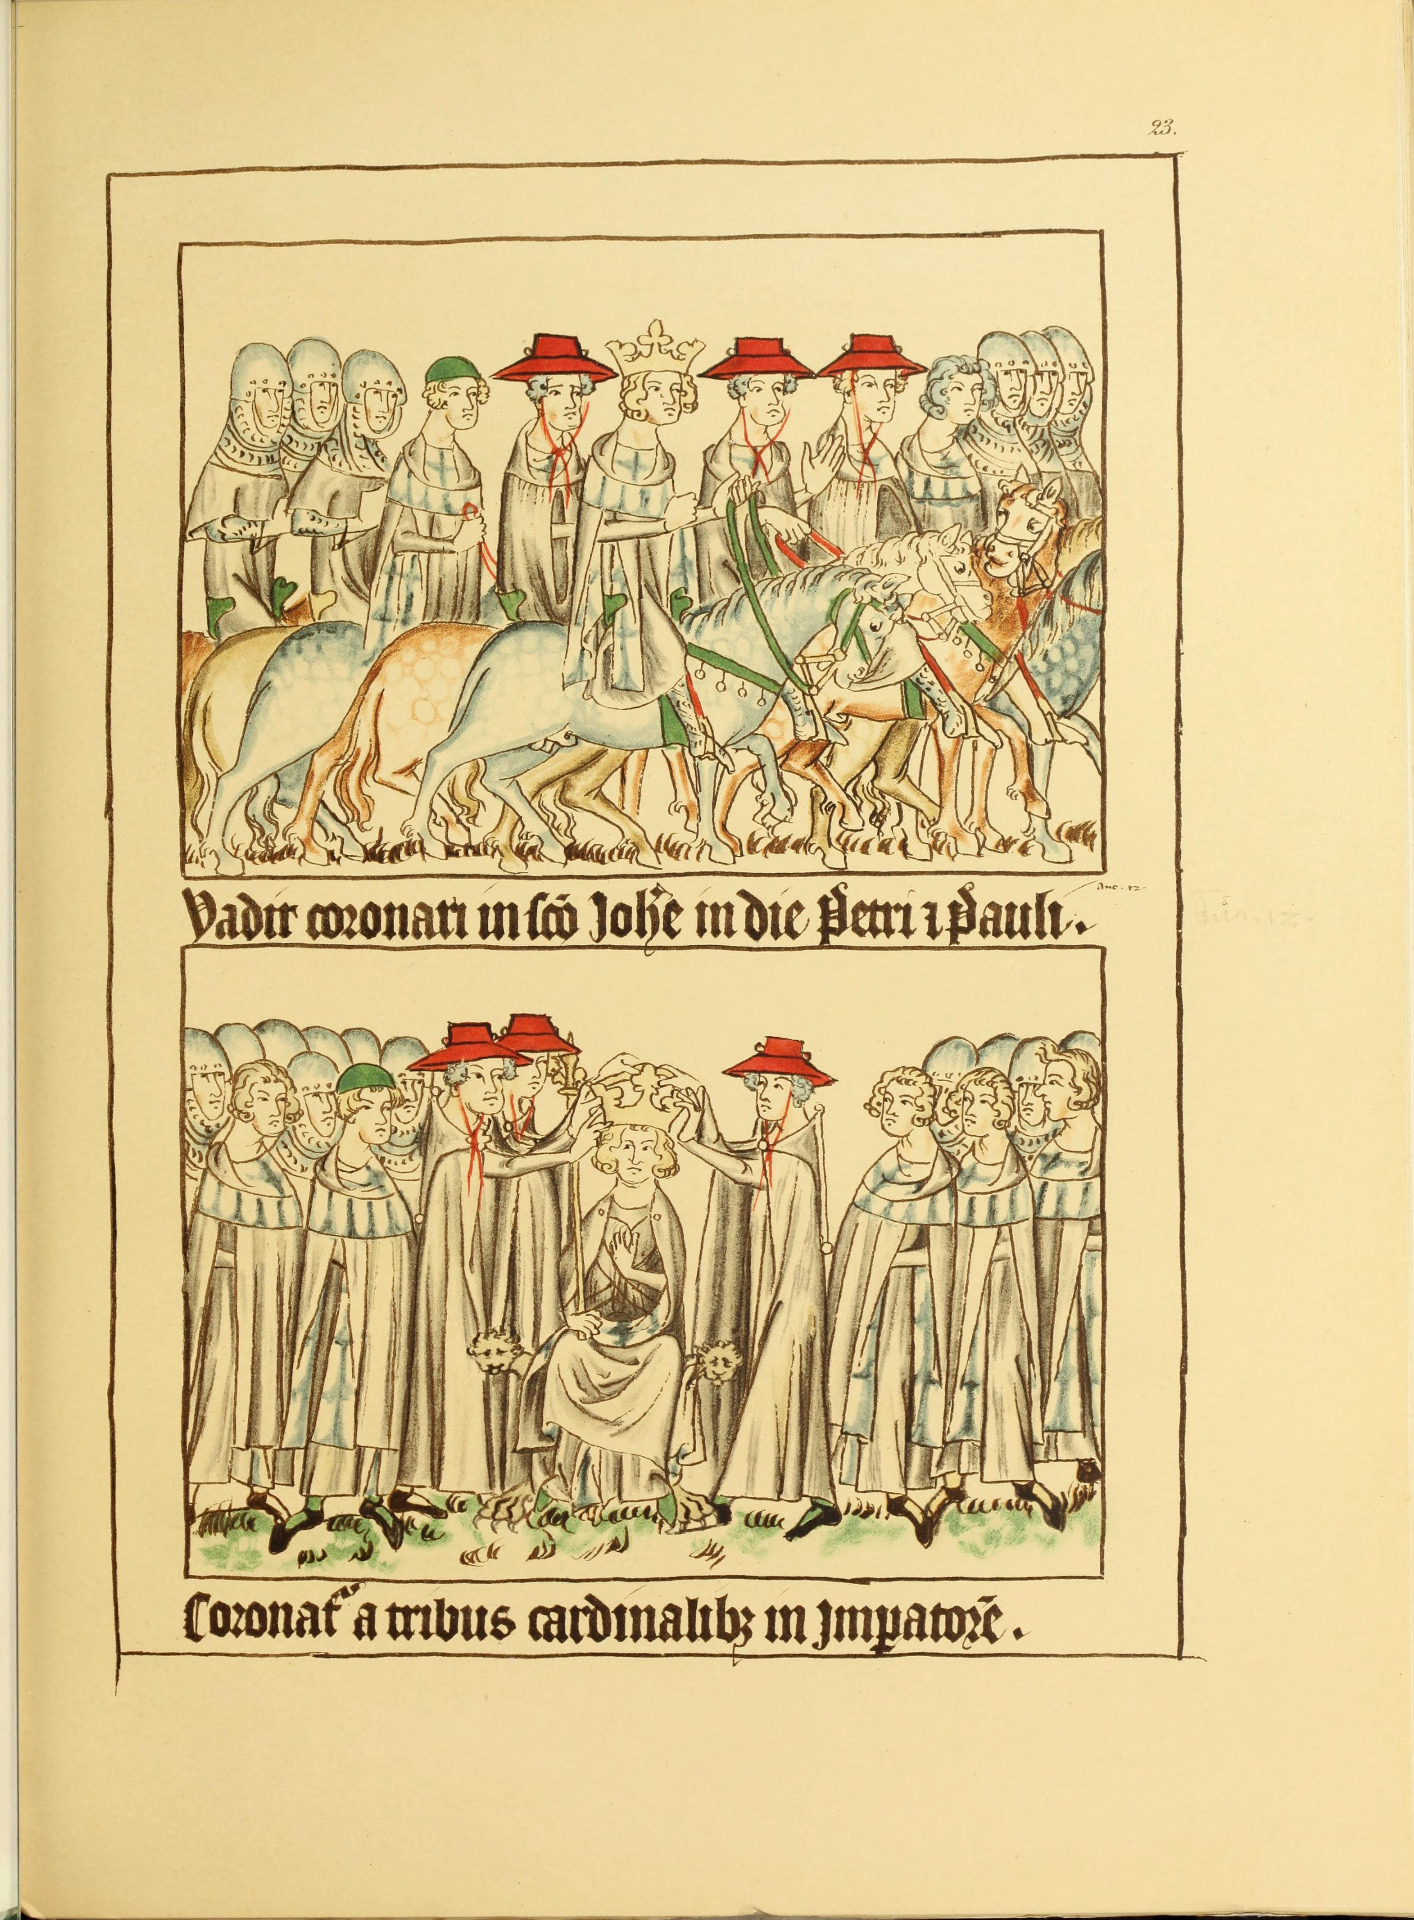 23.
Vadit coronari in sc̄o Joh̄e in die Petri ⁊ Pauli.
Coronat᷑ a tribus cardinalibꝫ in Jmꝑatorē.